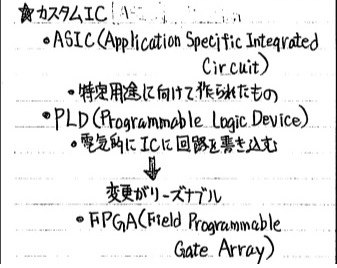 ☆カスタムIC
・ASIC(Application Specific Integrated
Circuit)
・特定用途に向けて作られたもの
・PLD(Programmable Logic Device)
・電気的にICに回路を書き込む
⇓
変更がリーズナブル
・FPGA(Field Programmable
Gate Array)